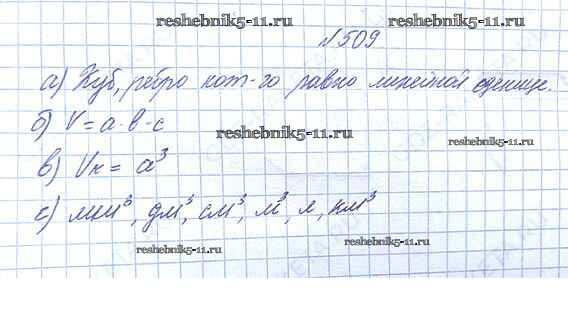 reshebnik5-11.ru
reshebnik5-11.ru
№509
а) Куб, ребро кот-го равно линейной еденице.
reshebnik5-11.ru
б) V = a·b·c
reshebnik5-11.ru
в) Vк = a³
reshebnik5-11.ru
г) мм³, дм³, см³, м³, л, км³
reshebnik5-11.ru
reshebnik5-11.ru